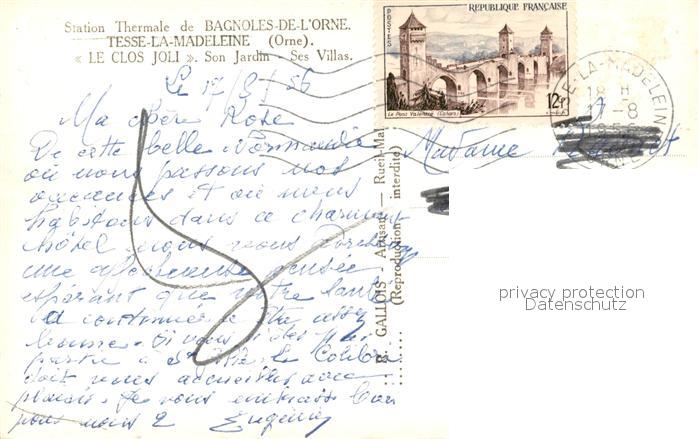 Station Thermale de BAGNOLES-DE-L'ORNE.
TESSE-LA-MADELEINE (Orne).
« LE CLOS JOLI ». Son Jardin - Ses Villas.
Le 17/8/56
Ma chère Rose
De cette belle Normandie
où nous passons nos
vacances et où nous
habitons dans ce charmant
hôtel nous vous
une affectueuse pensée
espérant que votre santé
continue à être assez
bonne. Si vous
partie à le Colibri
doit vous accueillir avec
plaisir. Je vous embrasse bien
pour nous 2 Eugénie
RÉPUBLIQUE FRANÇAISE
POSTES
12F
Le Pont Valentré (Cahors)
LA-MADELEINE
18 H
17-8
Madame
R. GALLOIS - Artisan - Rueil-Mal
(Reproduction interdite)
privacy protection
Datenschutz